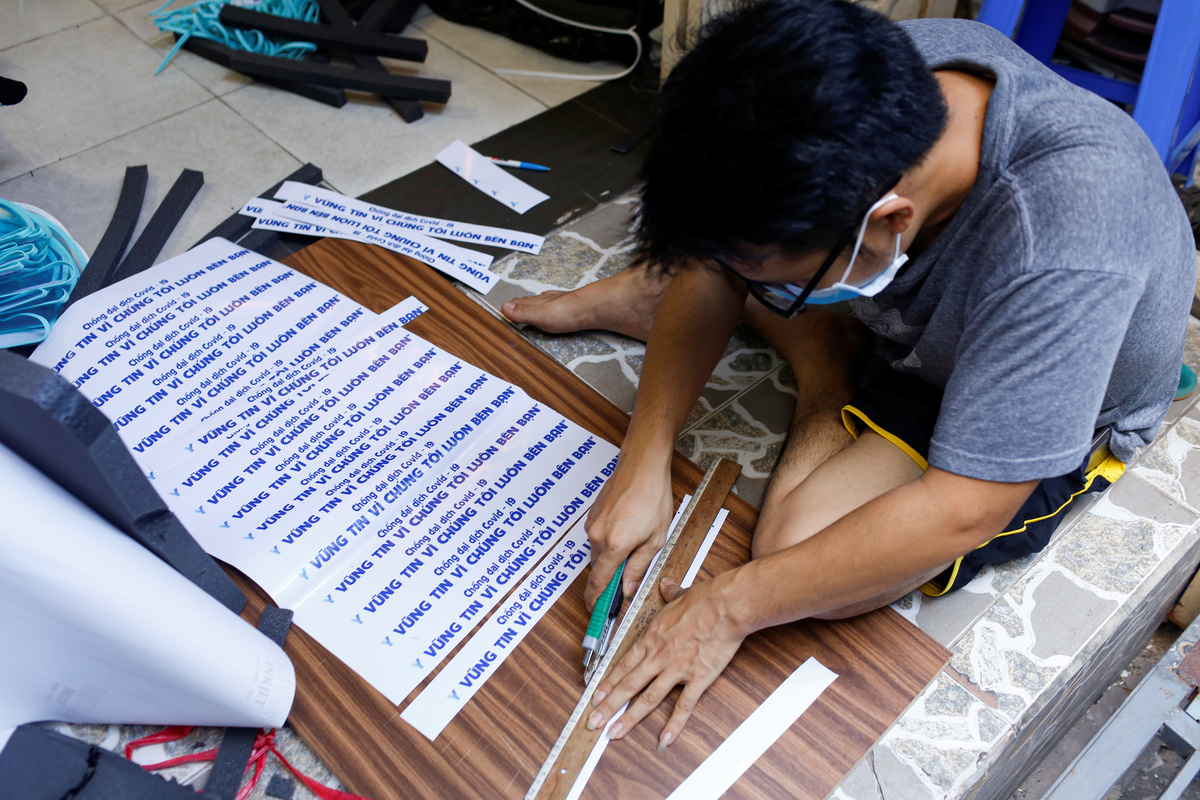 Chống đại dịch Covid - 19
VỮNG TIN VÌ CHÚNG TÔI LUÔN BÊN BẠN
VỮNG TIN VÌ CHÚNG TÔI LUÔN BÊN BẠN
Chống đại dịch Covid - 19
VỮNG TIN VÌ CH
Chống đại dịch Covid - 19
VỮNG TIN VÌ CHÚNG TÔI LUÔN BÊN BẠN
Chống đại dịch Covid - 19
VỮNG TIN VÌ CHÚNG TÔI LUÔN BÊN BẠN
Chống đại dịch Covid - 19
VỮNG TIN VÌ CHÚNG TÔI LUÔN BÊN BẠN
Chống đại dịch Covid - 19
VỮNG TIN VÌ CHÚNG TÔI LUÔN BÊN BẠN
Chống đại dịch Covid - 19
VỮNG TIN VÌ CHÚNG TÔI LUÔN BÊN BẠN
Chống đại dịch Covid - 19
VỮNG TIN VÌ CHÚNG TÔI LUÔN BÊN BẠN
Chống đại dịch Covid - 19
VỮNG TIN VÌ CHÚNG TÔI LUÔN BÊN BẠN
Chống đại dịch Covid - 19
VỮNG TIN VÌ CHÚNG TÔI LUÔN BÊN BẠN
Chống đại dịch Covid - 19
VỮNG TIN VÌ CHÚNG TÔI LUÔN BÊN BẠN
Chống đại dịch Covid - 19
VỮNG TIN VÌ CHÚNG TÔI LUÔN BÊN BẠN
Chống đại dịch Covid - 19
VỮNG TIN VÌ CHÚNG TÔI LUÔN BÊN BẠN
Chống đại dịch Covid - 19
VỮNG TIN VÌ CHÚNG TÔI LUÔN BÊN BẠN
Chống đại dịch Covid - 19
VỮNG TIN VÌ CHÚNG TÔI LUÔN BÊN BẠN
Chống đại dịch Covid - 19
VỮNG TIN VÌ CHÚNG TÔI